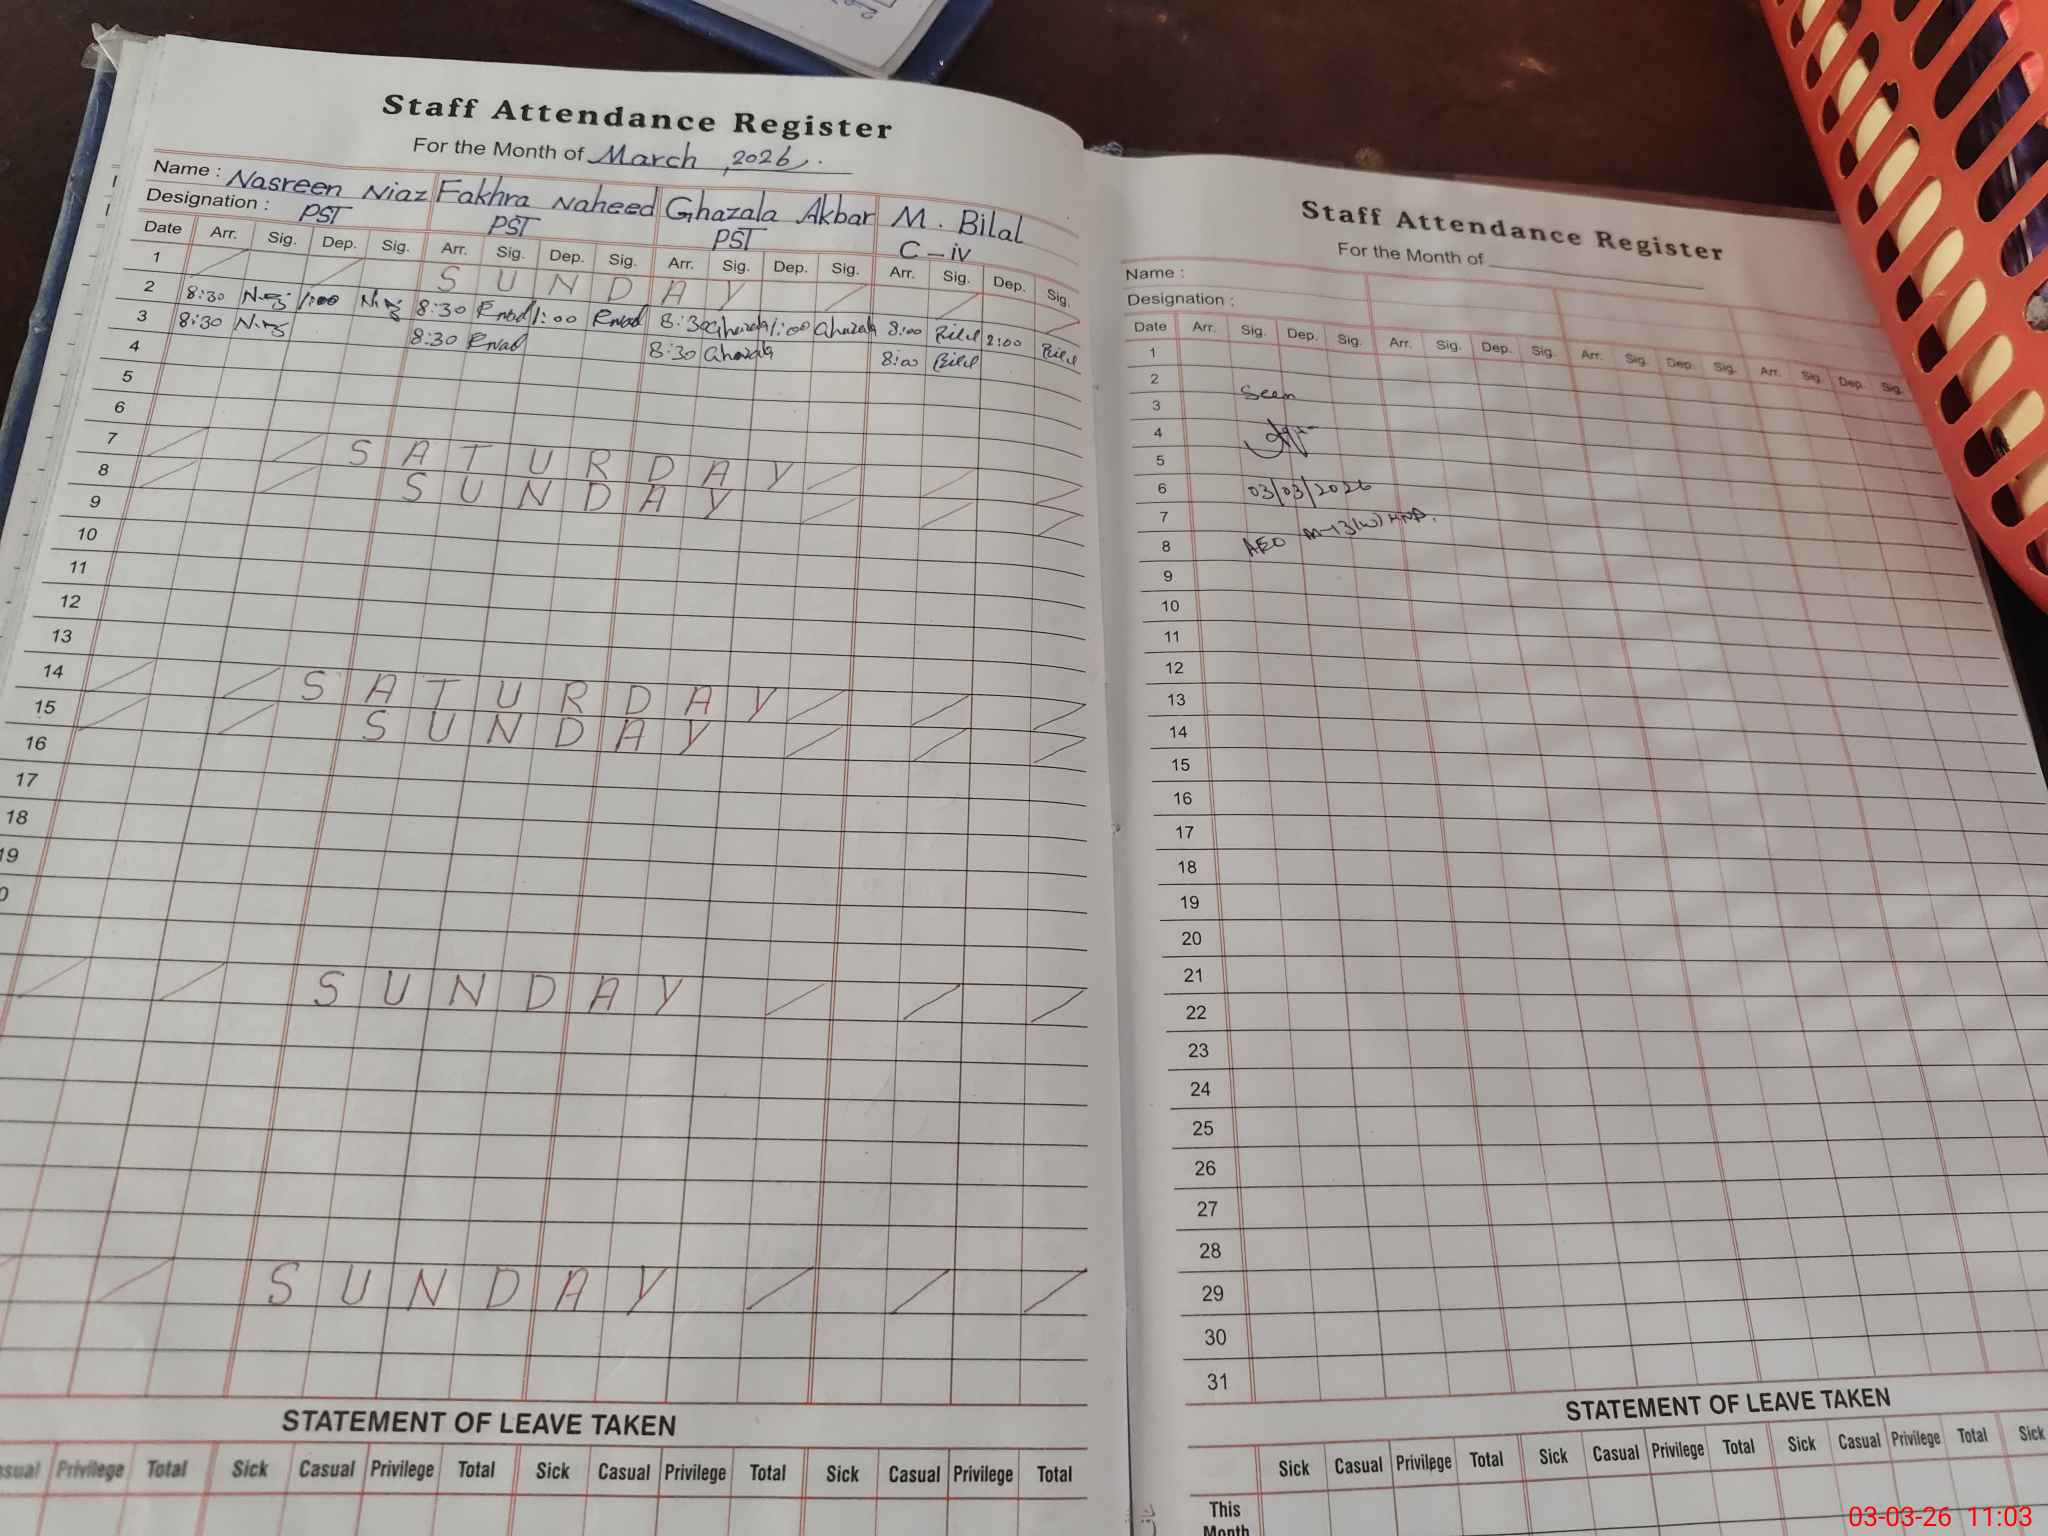 Staff Attendance Register
For the Month of March, 2026.
Name : Nasreen Niaz Fakhra Naheed Ghazala Akbar M. Bilal
Designation : PST PST PST C-iv
Date Arr. Sig. Dep. Sig. Arr. Sig. Dep. Sig. Arr. Sig. Dep. Sig. Arr. Sig. Dep. Sig.
1 SUNDAY
2 8:30 1:00 8:30 1:00 8:30 Ghazala 1:00 Ghazala 8:00 Bilal 2:00 Bilal
3 8:30 8:30 8:30 Ghazala 8:00 Bilal
4
5
6
7 SATURDAY
8 SUNDAY
9
10
11
12
13
14 SATURDAY
15 SUNDAY
16
17
18
19
SUNDAY
SUNDAY
STATEMENT OF LEAVE TAKEN
Privilege Total Sick Casual Privilege Total Sick Casual Privilege Total Sick Casual Privilege Total
Staff Attendance Register
For the Month of
Name :
Designation :
Date Arr. Sig. Dep. Sig. Arr. Sig. Dep. Sig. Arr. Sig. Dep. Sig. Arr. Sig. Dep. Sig.
1
2 Seen
3
4
5
6 03/03/2026
7
8 AEO
9
10
11
12
13
14
15
16
17
18
19
20
21
22
23
24
25
26
27
28
29
30
31
STATEMENT OF LEAVE TAKEN
Sick Casual Privilege Total Sick Casual Privilege Total Sick Casual Privilege Total Sick
This
Month
03-03-26 11:03